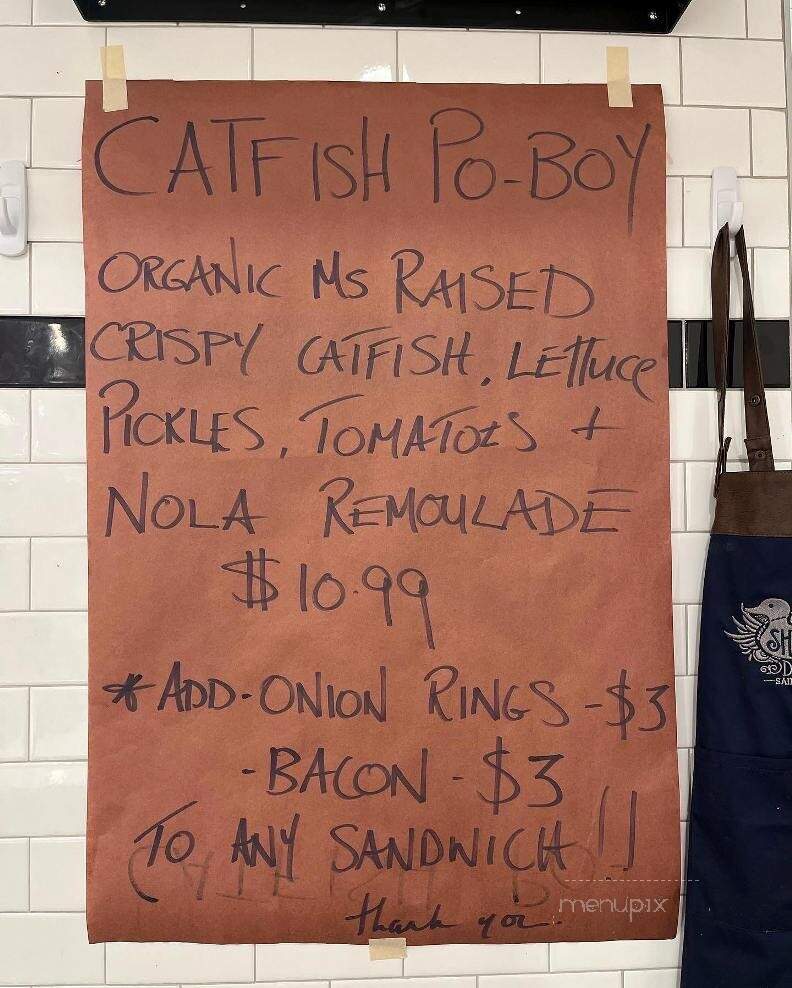 CATFISH PO-BOY
ORGANIC MS RAISED
CRISPY CATFISH, LETTUCE
PICKLES, TOMATOES +
NOLA REMOULADE
$10.99
* ADD - ONION RINGS - $3
- BACON - $3
TO ANY SANDWICH !!
thank you.
menupix
SH
D
SA